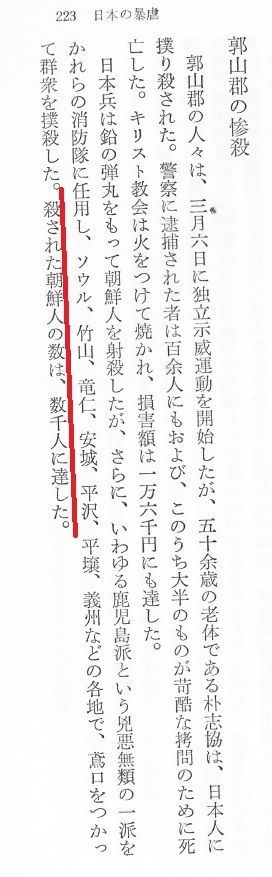 223 日本の暴虐
郭山郡の惨殺
郭山郡の人々は、三月六日に独立示威運動を開始したが、五十余歳の老体である朴志協は、日本人に
撲り殺された。警察に逮捕された者は百余人にもおよび、このうち大半のものが苛酷な拷問のために死
亡した。キリスト教会は火をつけて焼かれ、損害額は一万六千円にも達した。
日本兵は鉛の弾丸をもって朝鮮人を射殺したが、さらに、いわゆる鹿児島派という兇悪無類の一派を
かれらの消防隊に任用し、ソウル、竹山、竜仁、安城、平沢、平壌、義州などの各地で、鳶口をつかっ
て群衆を撲殺した。殺された朝鮮人の数は、数千人に達した。